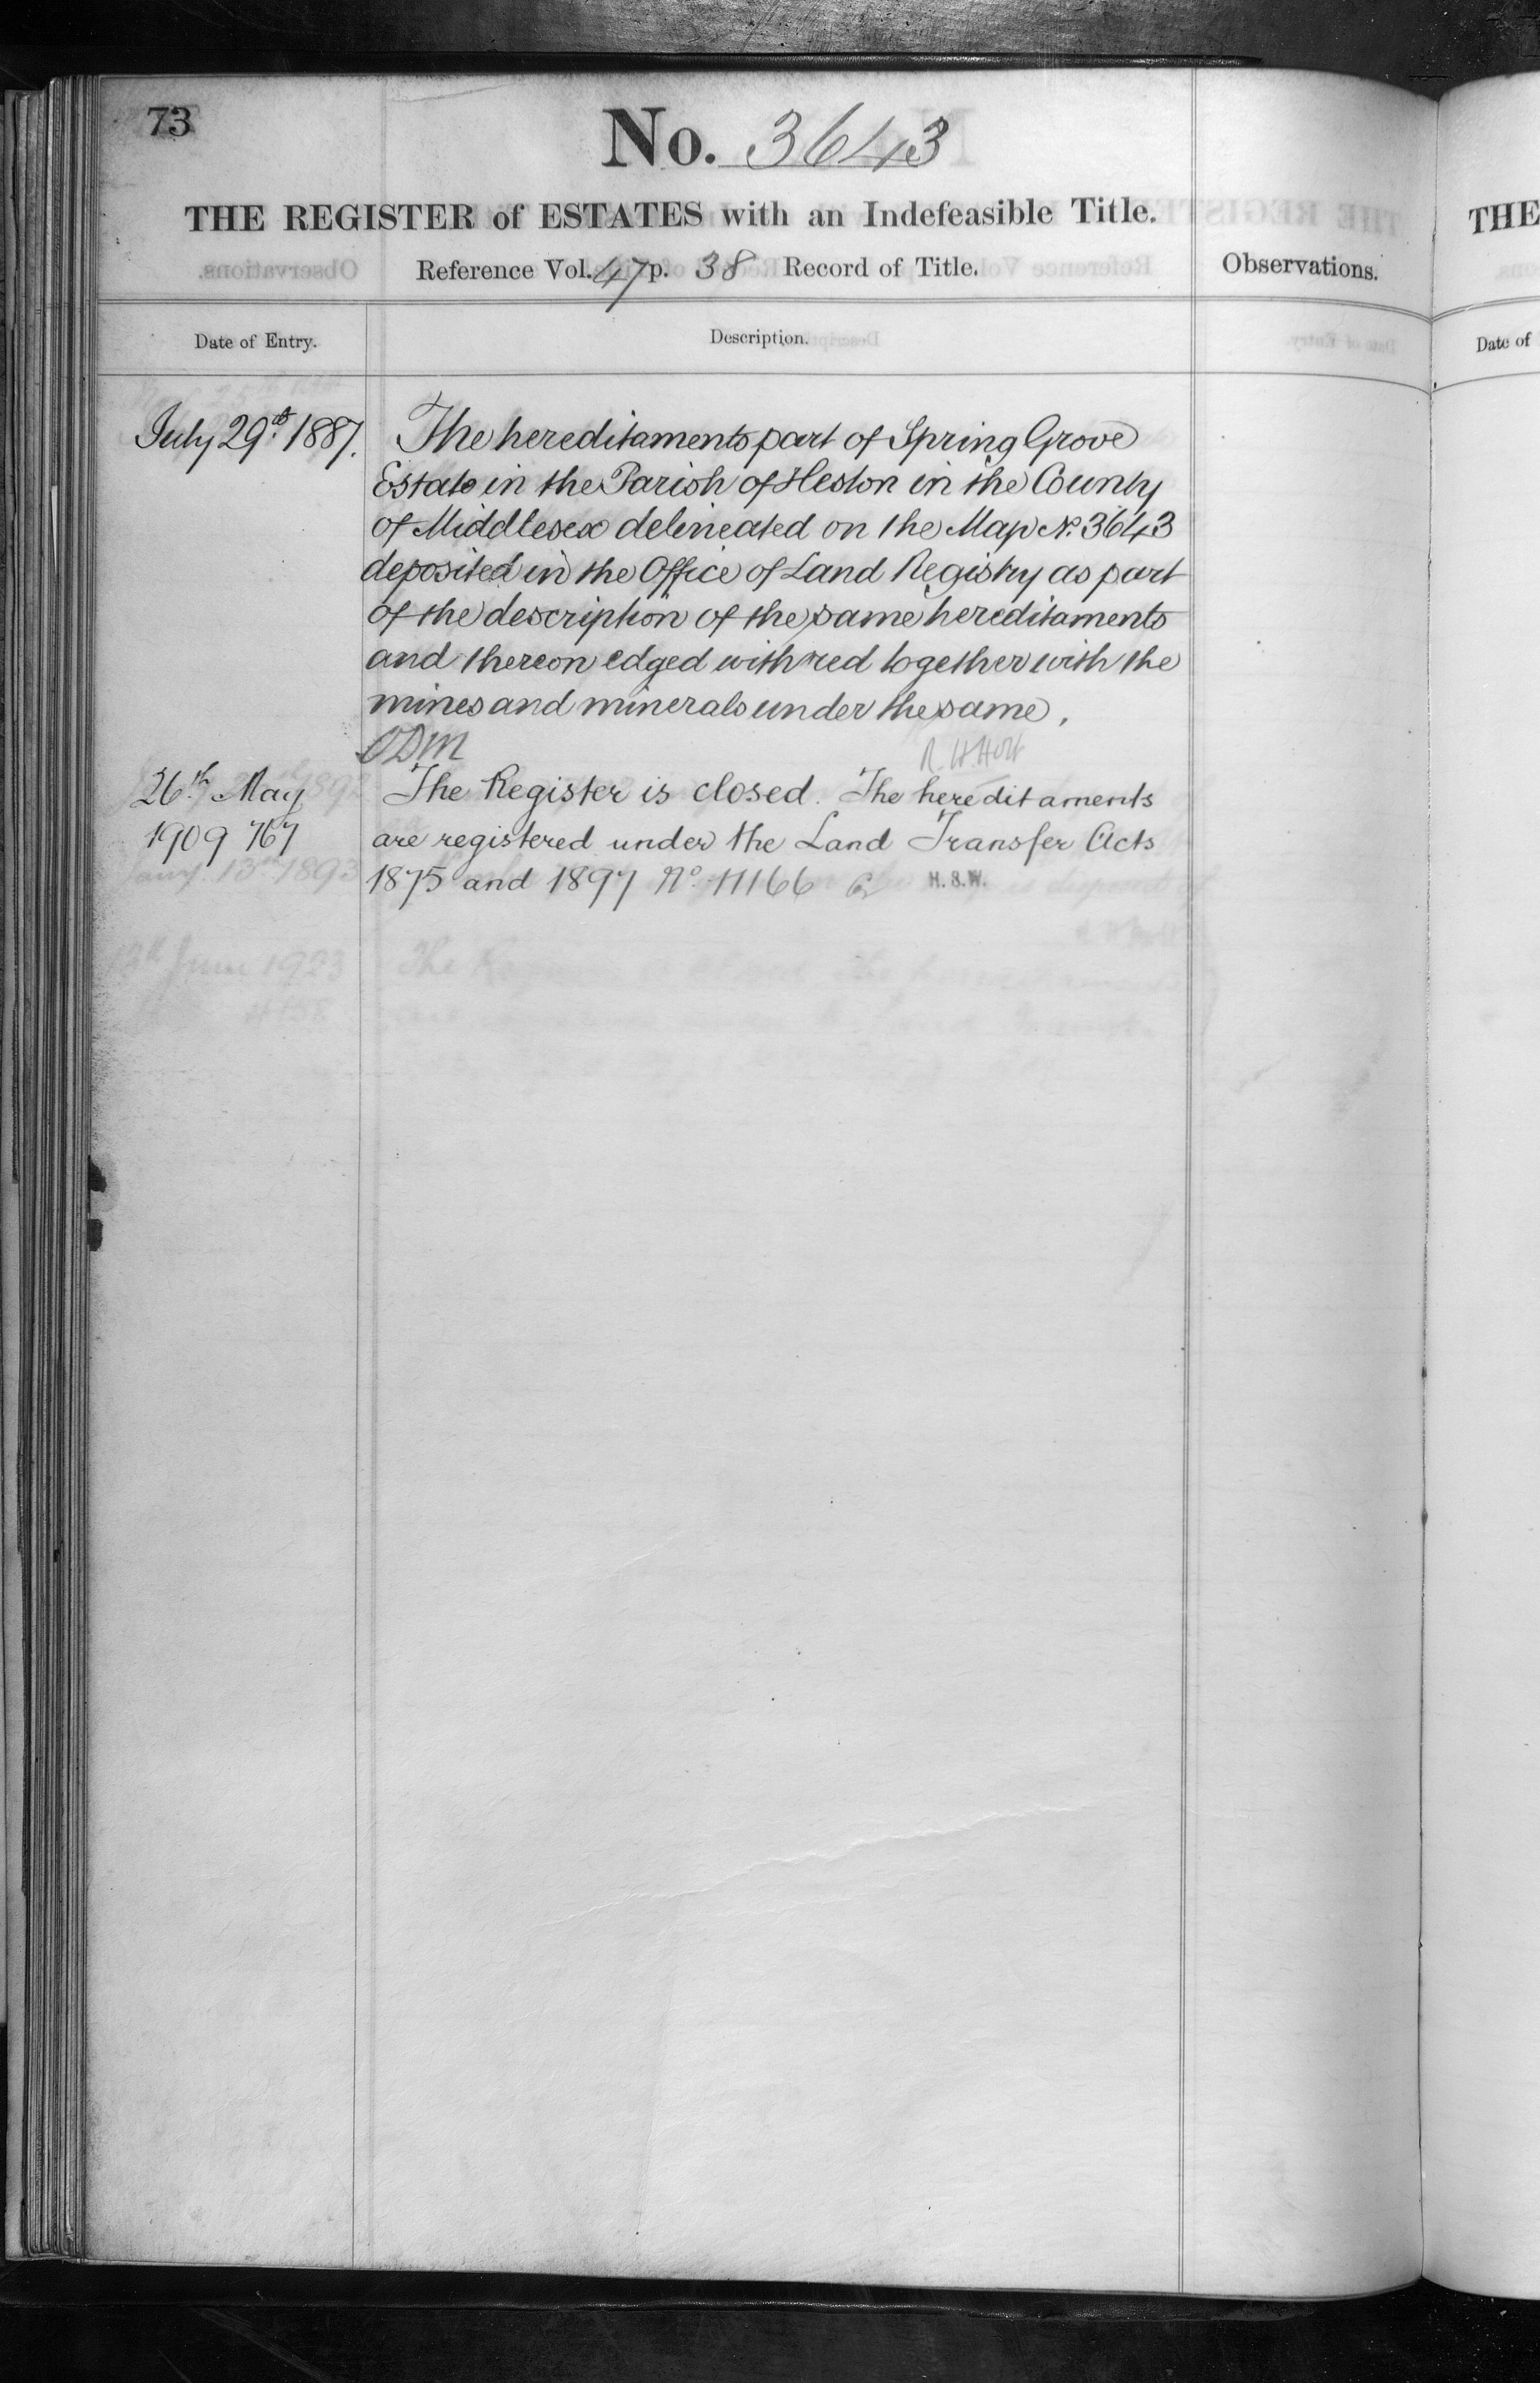 73
No. 3643
THE REGISTER of ESTATES with an Indefeasible Title.
Reference Vol. 47 p. 38 Record of Title.
Observations.
Date of Entry.
Description.
July 29th 1887.
The hereditaments part of Spring Grove
Estate in the Parish of Heston in the County
of Middlesex delineated on the Map No. 3643
deposited in the Office of Land Registry as part
of the description of the same hereditaments
and thereon edged with red together with the
mines and minerals under the same.
ODM
R. H. Holt
26th May
1909 767
The Register is closed. The hereditaments
are registered under the Land Transfer Acts
1875 and 1897 No. 11166
H.S.W.
THE
Date of